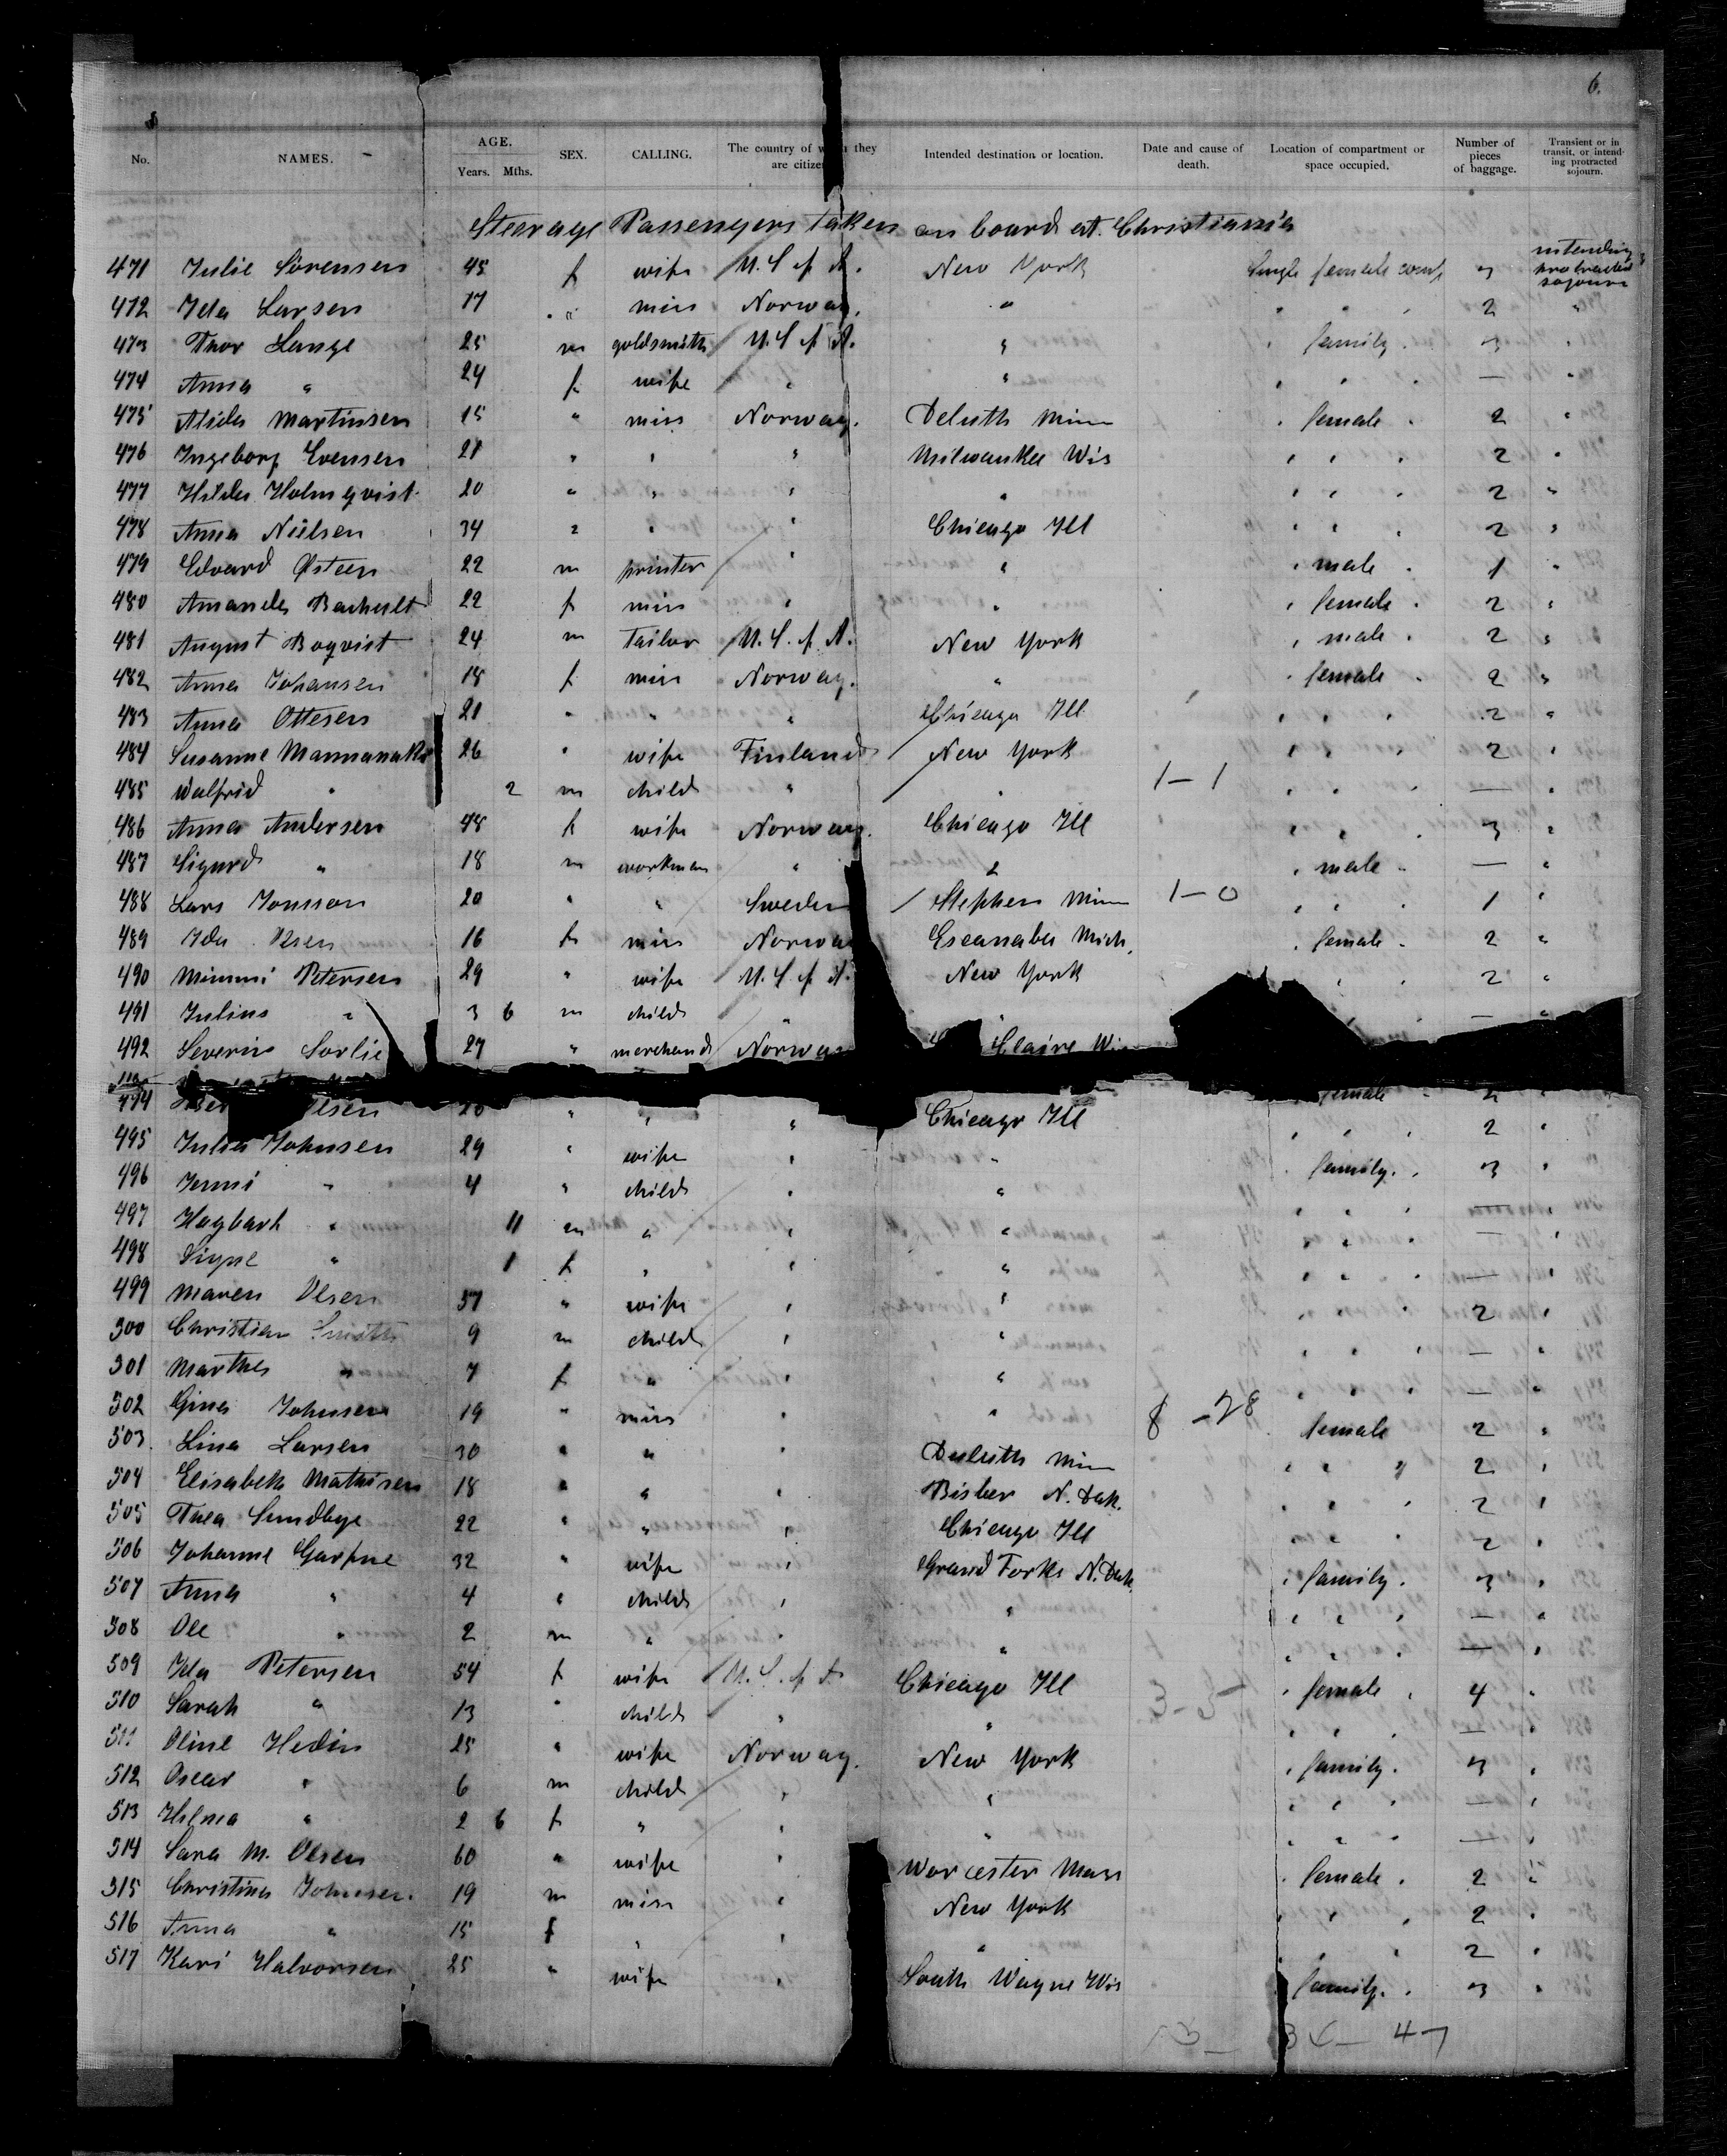 6.
No. NAMES. AGE. Years. Mths. SEX. CALLING. The country of they are citizen Intended destination or location. Date and cause of death. Location of compartment or space occupied. Number of pieces of baggage. Transient or in transit, or intending protracted sojourn.
Steerage Passengers taken on board at Christiania
471 Julie Sörensen 45 f wife U. S. of A. New York Single female comp. 3 intending protracted sojourn
472 Ida Larsen 17 " miss Norway. " " " " 2 "
473 Thor Lange 25 m goldsmith U. S. of A. " " family " 3 "
474 Anna " 24 f wife " " " " " — "
475 Alida Martinsen 15 " miss Norway. Deluth Minn " female " 2 "
476 Ingeborg Evensen 21 " " " Milwaukee Wis " " " 2 "
477 Hilda Holmqvist 20 " " " " " " " 2 "
478 Anna Nielsen 34 " " " Chicago Ill " " " 2 "
479 Edvard Østeen 22 m printer " " " male " 1 "
480 Amanda 22 f miss " " " female " 2 "
481 August Boqvist 24 m Tailor U. S. of A. New York " male " 2 "
482 Anna Johansen 18 f miss Norway. " " female " 2 "
483 Anna Ottesen 21 " " " Chicago Ill " " " 2 "
484 Susanne 26 " wife Finland New York " " " 2 "
485 Walfrid " 2 m child " " 1-1 " " " — "
486 Anna Andersen 48 f wife Norway. Chicago Ill " " " 3 "
487 Sigurd " 18 m workman " " " male " — "
488 Lars Jonsson 20 " " Sweden Stephen Minn 1-0 " " " 1 "
489 Ida Olsen 16 f miss Norwa Escanaba Mich. " female " 2 "
490 Minni Petersen 29 " wife U. S. of A. New York " " 2 "
491 Julius " 3 6 m child " " — "
492 Severin Sorlie 27 " merchand Norwa Claire Wi
494 lsen " " " Chicago Ill female " 2 "
495 Julia Johnsen 29 " wife " " " " " 2 "
496 Jenni " 4 " child " " " family " 3 "
497 Hagbarh " 11 m " " " " " " — "
498 Signe " 1 f " " " " " " — "
499 Maren Olsen 57 " wife " " " " " 2 "
500 Christian Smith 9 m child " " " " " — "
501 Martha " 7 f " " " " " " — "
502 Gina Johnsen 19 " miss " " 8-28 " female 2 "
503. Lina Larsen 30 " " " Duluth Min " " " 2 "
504 Elisabeth Mathisen 18 " " " Bisber N. Dak. " " " 2 "
505 Thea Sundbye 22 " " " Chicago Ill " " " 2 "
506 Johanne Garpne 32 " wife " Grand Forks N. Dak. " family " 3 "
507 Anna " 4 " child " " " " " — "
508 Ole " 2 m " " " " " " — "
509 Ida Petersen 54 f wife U. S. of A. Chicago Ill 3-5 " female " 4 "
510 Sarah " 13 " child " " " " " — "
511 Oline Hedin 25 " wife Norway. New York " family " 3 "
512 Oscar " 6 m child " " " " " — "
513 Hilma " 2 6 f " " " " " " — "
514 Sara M. Olsen 60 " wife " Worcester Mass " female " 2 "
515 Christina Johnsen 19 m miss " New York " " " 2 "
516 Anna " 15 f " " " " " " 2 "
517 Kari Halvorsen 25 " wife " South Wayne Wis " family " 3 "